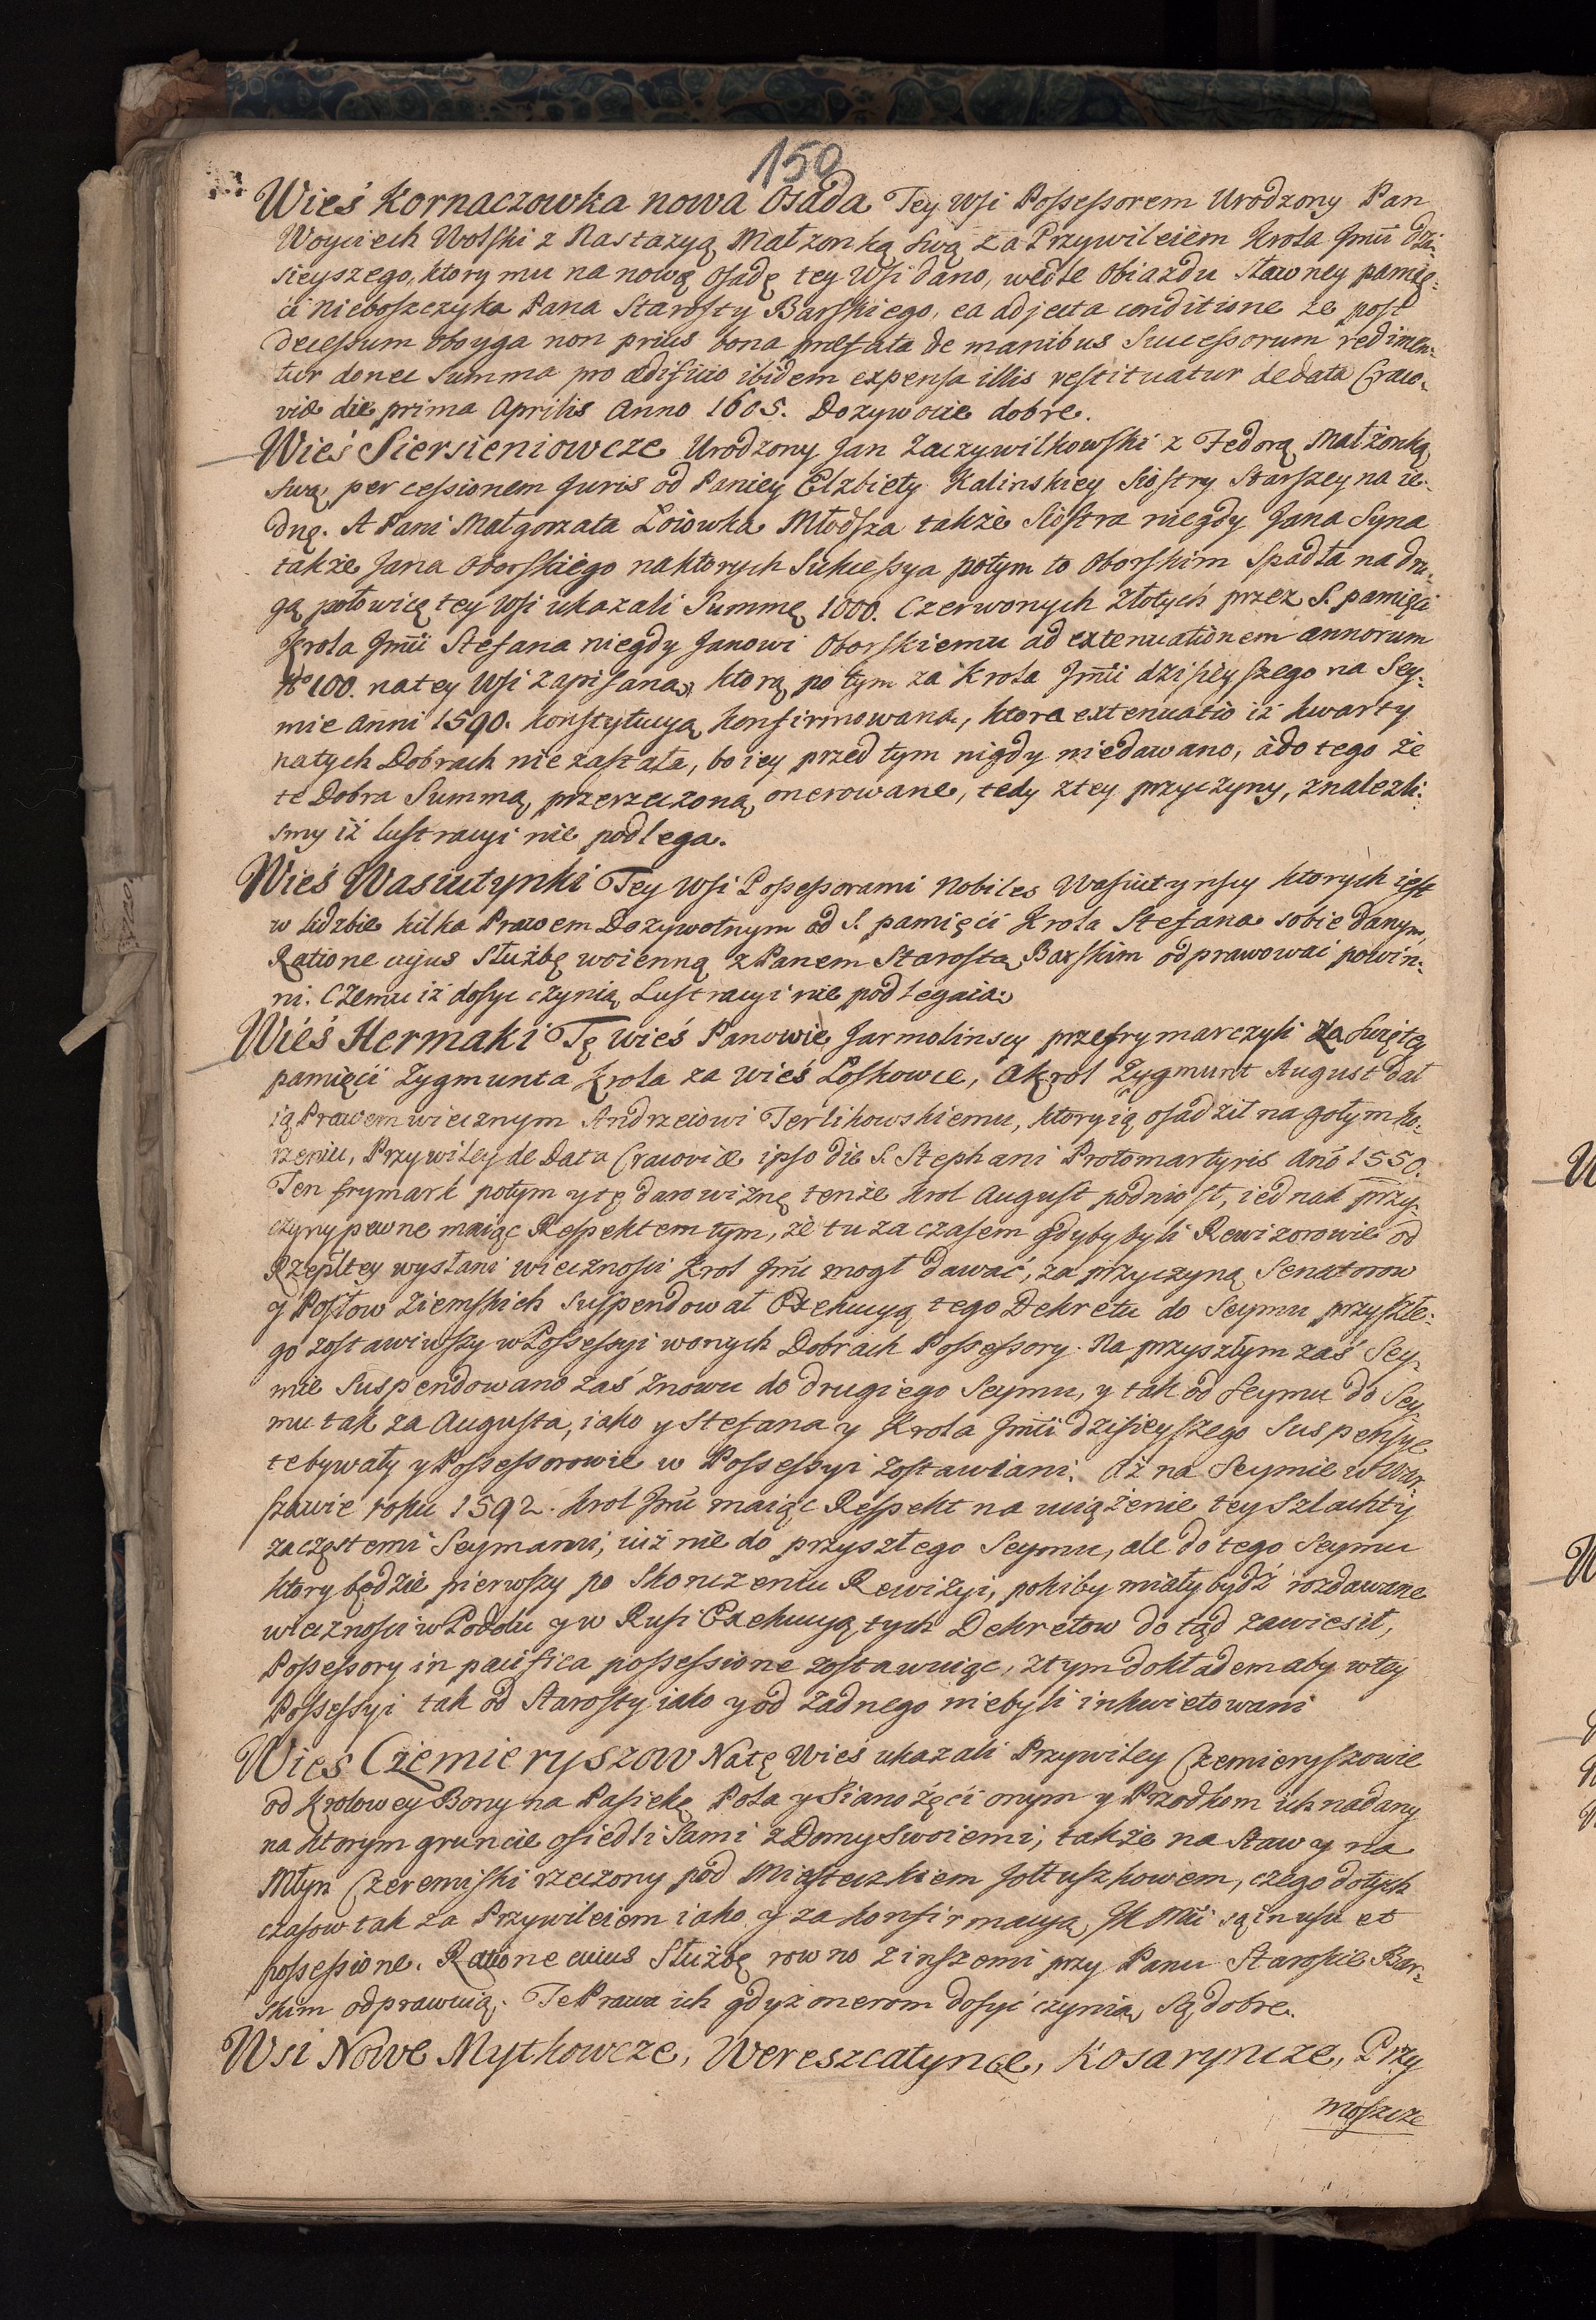 150
Wieś Kornaczowka nowa Osada Tey Wsi Possessorem Urodzony Pan
Woyciech Wolski z Nastazyą Małzonką swą za Przywileiem Krola Jmći dzi-
sieyszego, ktory mu na nową Osadę tey Wsi dano, wedle Obiazdu sławney pamię-
ci nieboszczyka Pana Starosty Barskiego, ea adjecta conditione że post
decessum oboyga non prius bona præfata de manibus Successorum redimen-
tur donec Summa pro ædificio ibidem expensa illis restituatur de data Craco-
viæ die prima Aprilis Anno 1605. Dozywocie dobre.
Wieś Siersieniowcze Urodzony Jan Zaczywilkowski z Fedorą Małżonką
swą per cessionem Juris od Paniey Elzbiety Kalinskiey Siostry Starszey na ie-
dnę. A Pani Małgorzata Loiowka Młodsza także Siostra niegdy Jana Syna
także Jana Oborskiego na ktorych Sukcessya potym to Oborskim spadła na dru-
gą połowicę tey Wsi ukazali Summę 1000. Czerwonych Złotych przez S. pamięci
Krola Jmći Stefana niegdy Janowi Oborskiemu ad extenuationem annorum
100. na tey Wsi zapisaną, ktorą po tym za Krola Jmći dzisieyszego na Sey-
mie anni 1590. konstytucyą konfirmowana, ktora extenuatio iż kwarty
na tych Dobrach nie zastała, bo iey przed tym nigdy niedawano, ado tego że
te Dobra Summą przerzeczoną onerowane, tedy z tey przyczyny, znalezli-
smy iż lustracyi nie podlega.
Wieś Wasiutynki Tey Wsi Possessorami Nobiles Wasiutynscy ktorych iest
w liczbie kilka Prawem Dozywotnym od S. pamięci Krola Stefana sobie danym,
Ratione cujus Służbę woienną z Panem Starostą Barskim odprawować powin-
ni. Czemu iż dosyc czynią Lustracyi nie podlegaią.
Wieś Hermaki Tę wieś Panowie Jarmolinscy przefrymarczyli za swiętey
pamięci Zygmunta Krola za wieś Loskowce, a Krol Zygmunt August dał
ią Prawem wiecznym Andrzeiowi Terlikowskiemu, ktory ią osadził na gołym ko-
rzeniu, Przywiley de Data Cracoviæ ipso die S. Stephani Protomartyris Anō 1550.
Ten frymark potym y tę darowiznę tenże Krol August podniosł, iednak przy-
czyny pewne maiąc Respektem tym, że tu za czasem gdyby byli Rewizorowie od
Rzepltey wysłani wieczności Krol Jmć mogł dawać, za przyczyną Senatorow
y Posłow Ziemskich suspendował Exekucyą tego Dekretu do Seymu przyszłe-
go zostawiwszy w Possessyi wonych Dobrach Possessory. Na przyszłym zaś Sey-
mie suspendowano zaś znowu do drugiego Seymu, y tak od Seymu do Sey-
mu tak za Augusta, iako y Stefana y Krola Jmći dzisieyszego Suspensye
te bywały y Possessorowie w Possessyi zostawiani. Aż na Seymie w War-
szawie roku 1592. Krol Jmć maiąc Respekt na uciążenie tey Szlachty
za częstemi Seymami, iuż nie do przyszłego Seymu, ale do tego Seymu
ktory będzie pierwszy po skonczeniu Rewizyi, pokiby miały bydź rozdawane
wieczności w Podolu y w Rusi Exekucyą tych Dekretow do tąd zawiesił,
Possessory in pacifica possessione zostawuiąc, z tym dokładem aby w tey
Possessyi tak od Starosty iako y od żadnego niebyli inkwietowani
Wieś Cziemieryszow Na tę Wieś ukazali Przywiley Czemieryszowie
od Krolowey Bony na Pasiekę Pola y Sianożęci onym y Przodkom ich nadany
na ktorym gruncie osiedli sami z Domy swoiemi, także na Staw y na
Młyn Czeremiski rzeczony pod Miasteczkiem Jołtuszkowem, czego do tych
czasow tak za Przywileiem iako y za konfirmacyą JKMći są in usu et
possessione. Ratione cuius Służbę rowno z inszemi przy Panu Staroscie Bar-
skim odprawuią. Te Prawa ich gdyż onerom dosyć czynią są dobre.
Wsi Nowe Mytkowcze, Wereszcatynce, Kosaryncze, Przy
moszcze